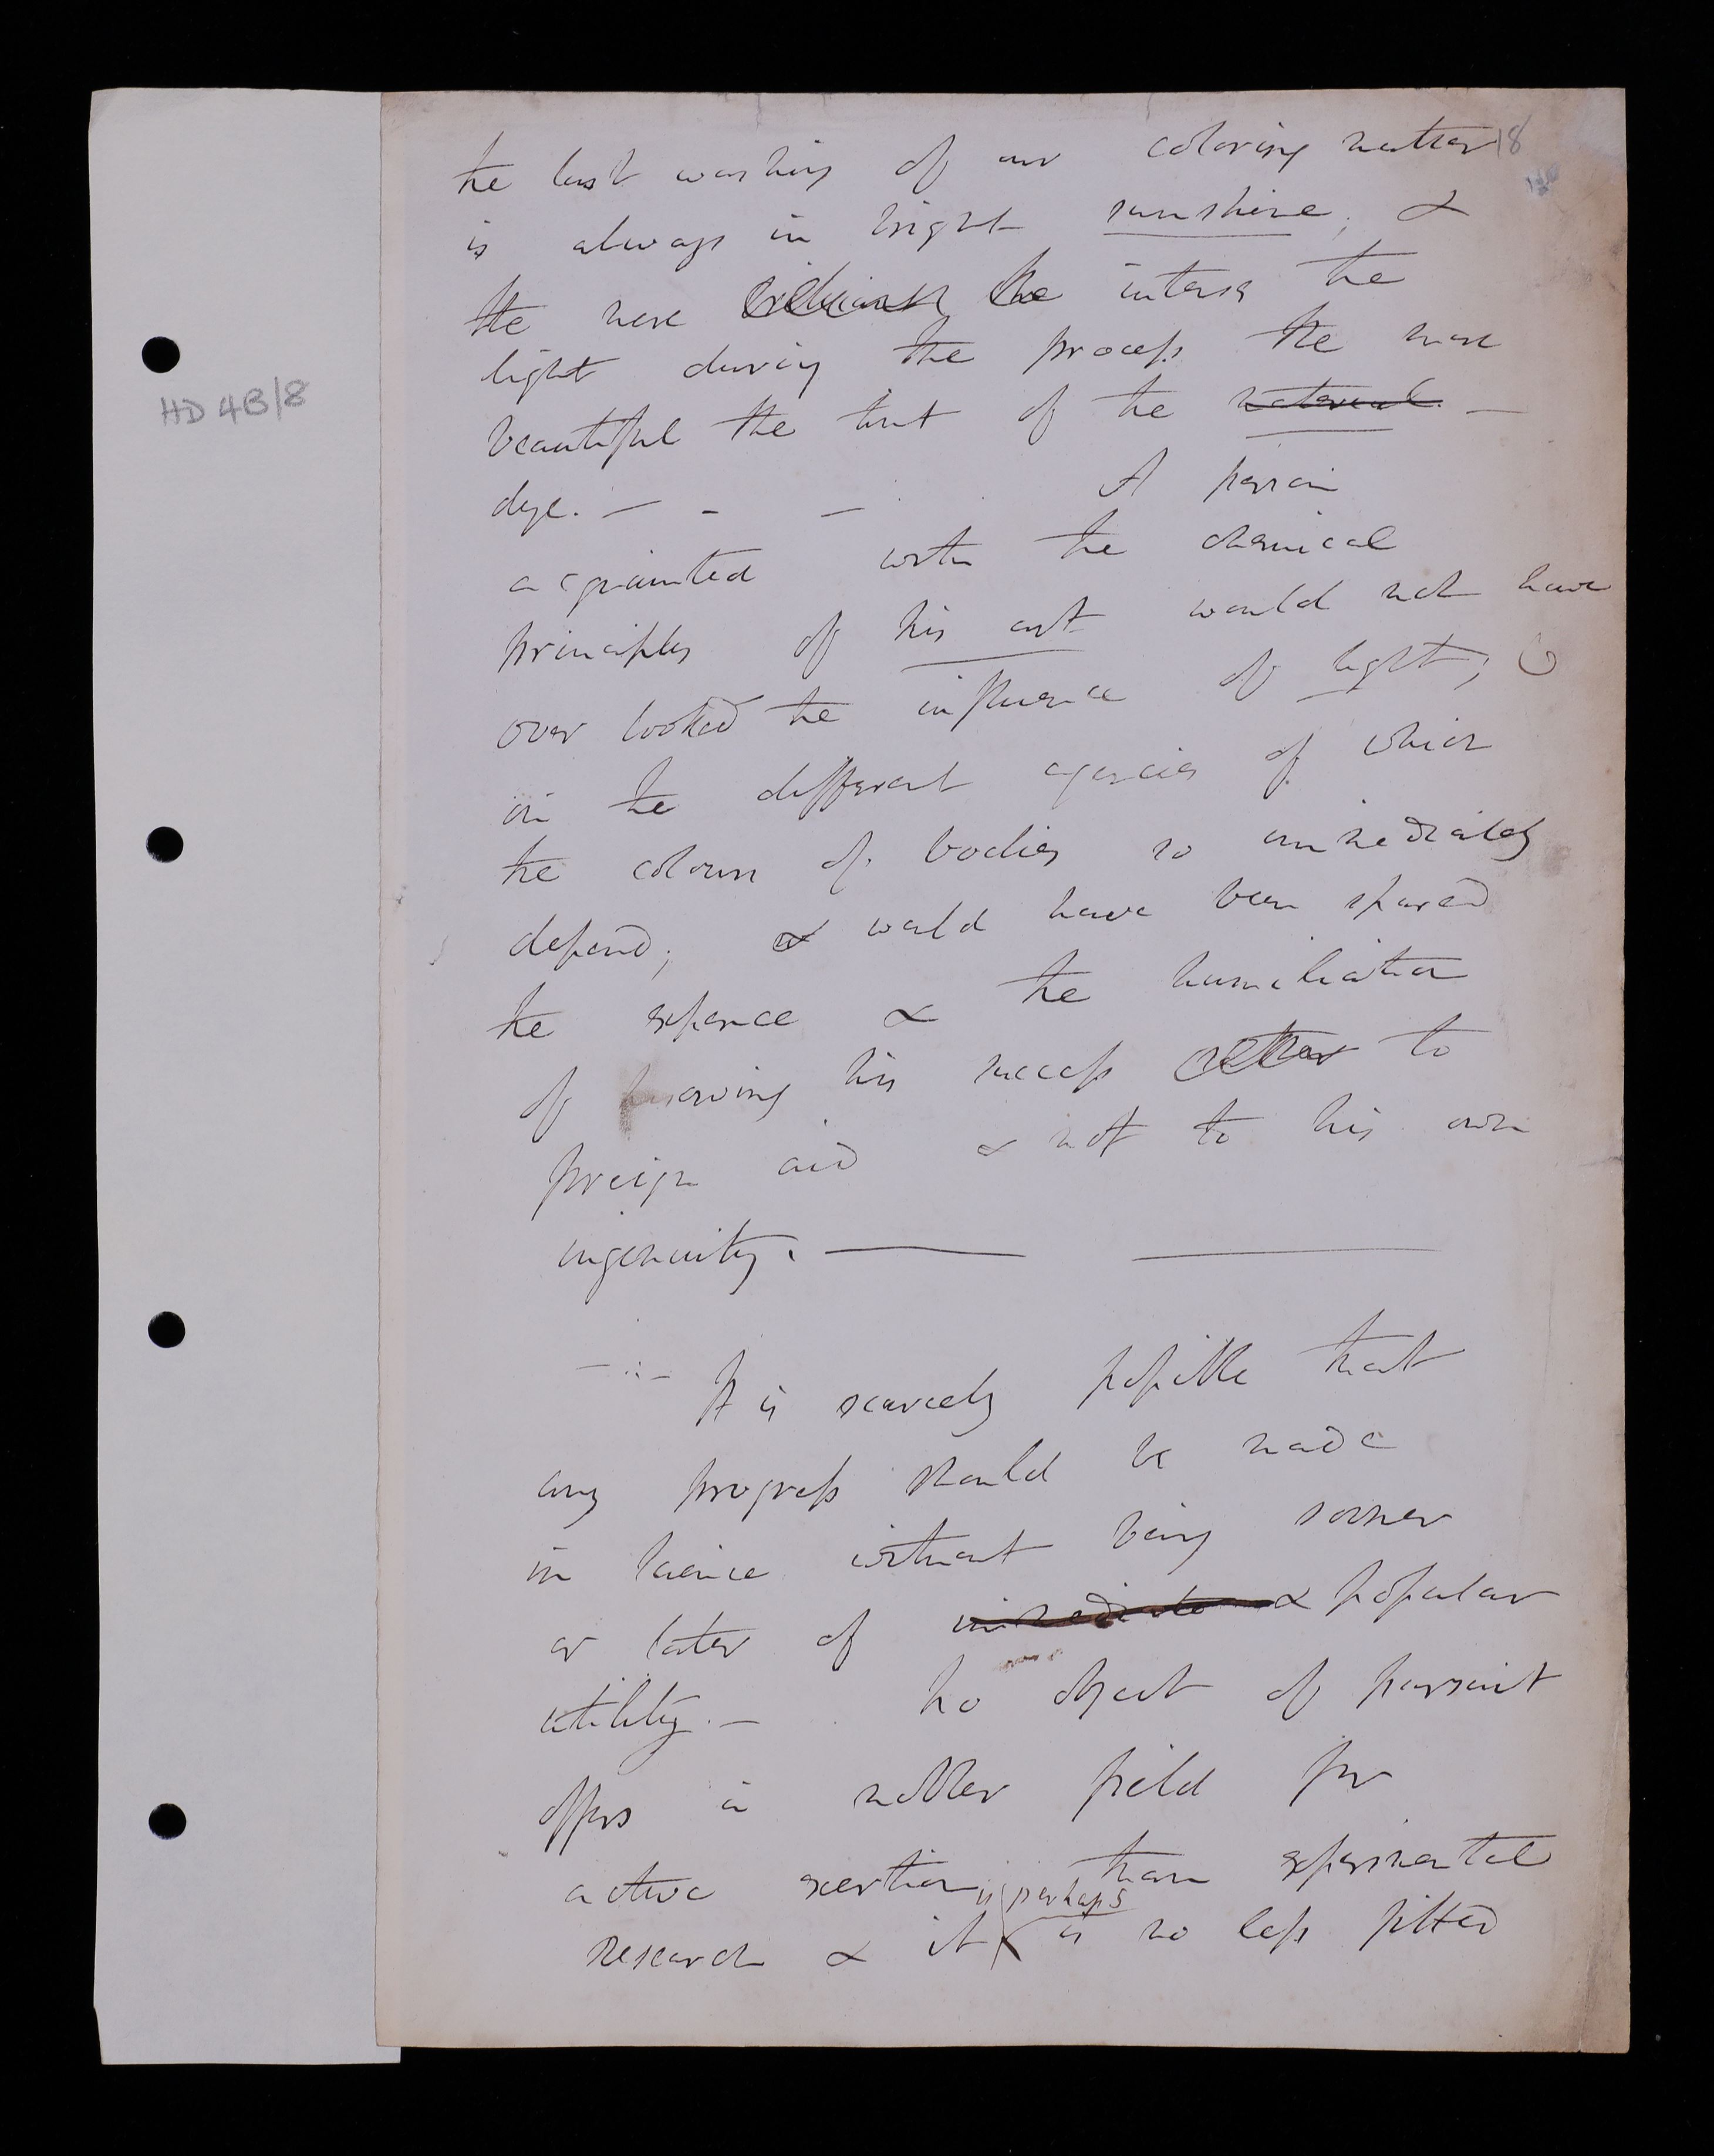 18
the last washing of our coloring matter
is always in bright sunshine; &
the more brilliant the intense the
light during the process the more
beautiful the tint of the material. —
dye. — - — A person
acquainted with the chemical
principles of his art would not have
over looked the influence of light;
on the different agencies of which
the colours of bodies so immediately
depend; & would have been spared
the expence & the humiliation
of knowing his success to
foreign aid & not to his own
ingenuity. — —
HD 4B/8
It is scarcely possible that
any progress should be made
in Science without being sooner
or later of immediate & popular
utility. — No object of pursuit
offers a nobler field for
active exertion than experimental
is perhaps
research & it is no less fitted